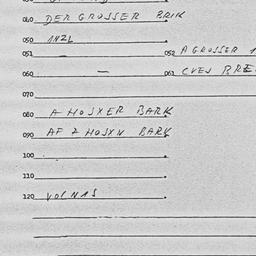 040 DER GROSSER BRIK
050 ANZL
051 052 A GROSSER
060 — 061 CVES BRE
070
080 A HOSXER BARK
090 AF 2 HOSXN BARK
100
110
120 VOLNAS